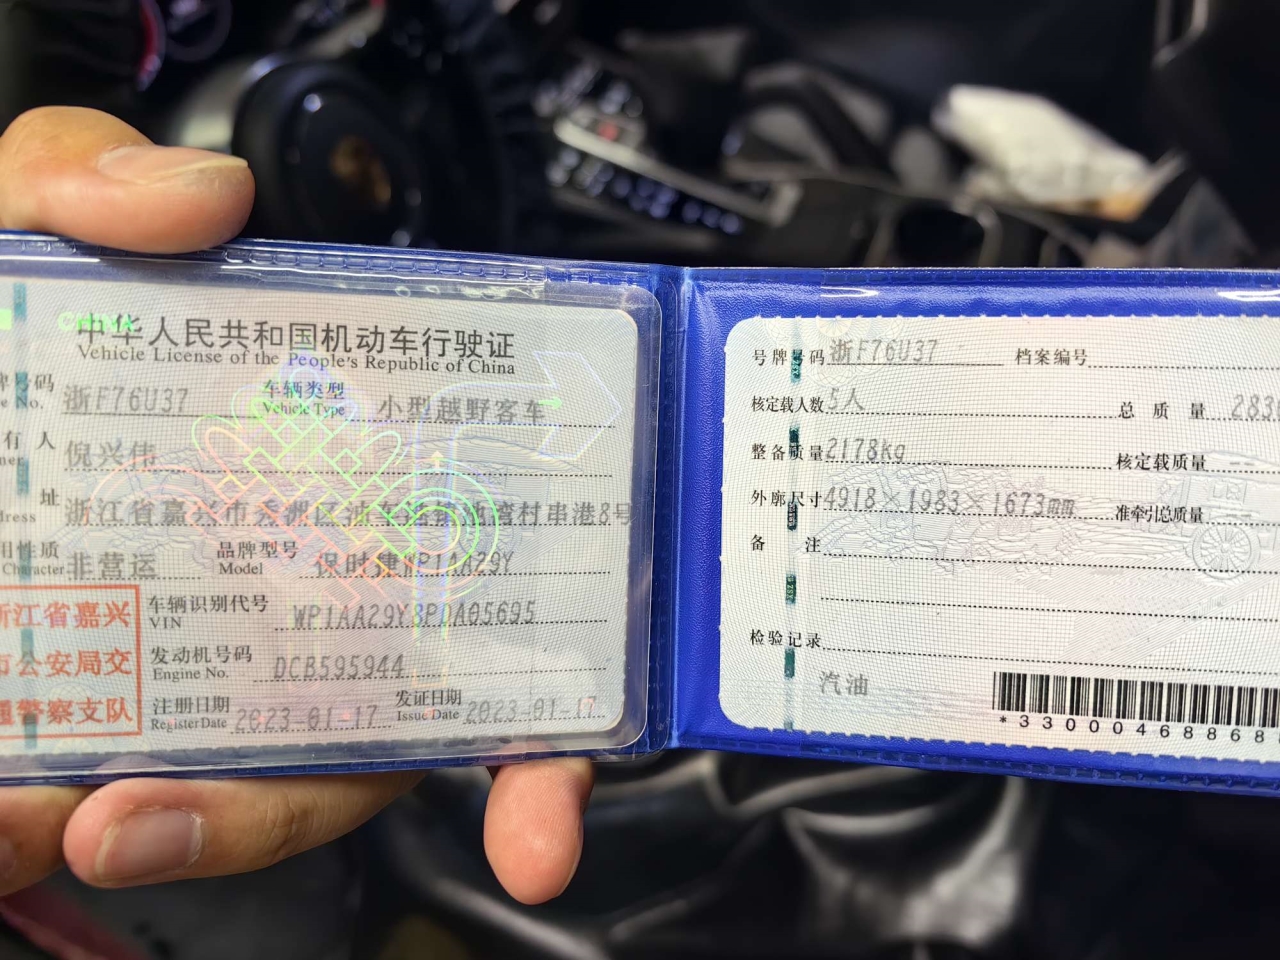 CHINA
中华人民共和国机动车行驶证
Vehicle License of the People's Republic of China
牌号码 浙F76U37 车辆类型 小型越野客车
e No. Vehicle Type
有人 倪兴伟
ner
址 浙江省嘉兴市秀洲区油车港镇池湾村串港8号
dress
用性质 非营运 品牌型号 保时捷WP1AA29Y
Character Model
浙江省嘉兴
市公安局交
通警察支队
车辆识别代号 WP1AA29Y8PDA05695
VIN
发动机号码 DCB595944
Engine No.
注册日期 2023-01-17 发证日期 2023-01-17
Register Date Issue Date
号牌号码 浙F76U37 档案编号
核定载人数 5人 总质量 283
整备质量 2178kg 核定载质量 --
外廓尺寸 4918×1983×1673mm 准牵引总质量
备注
检验记录
汽油
*33000468868